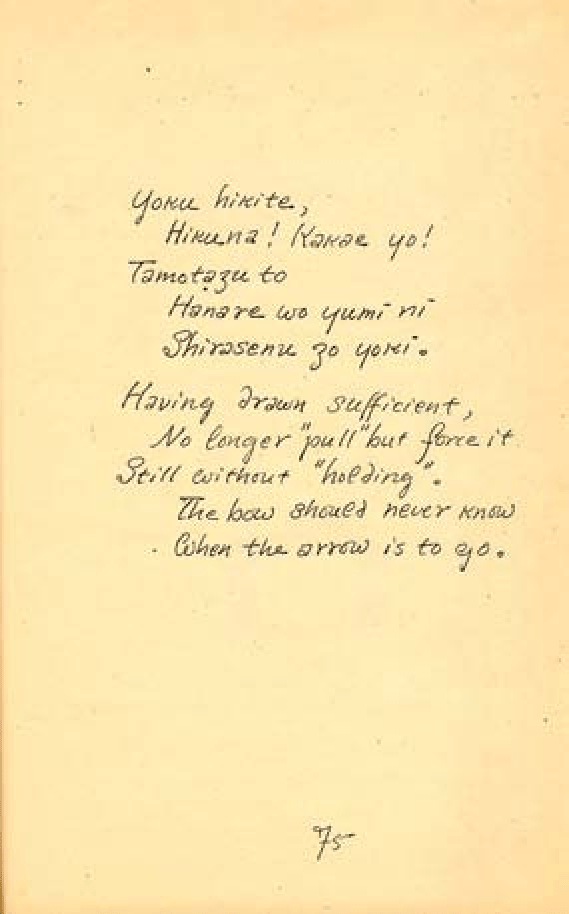 Yoku hikite,
Hikuna! Kakae yo!
Tamotazu to
Hanare wo yumi ni
Shirasenu zo yoki.
Having drawn sufficient,
No longer "pull" but force it
Still without "holding".
The bow should never know
When the arrow is to go.
75